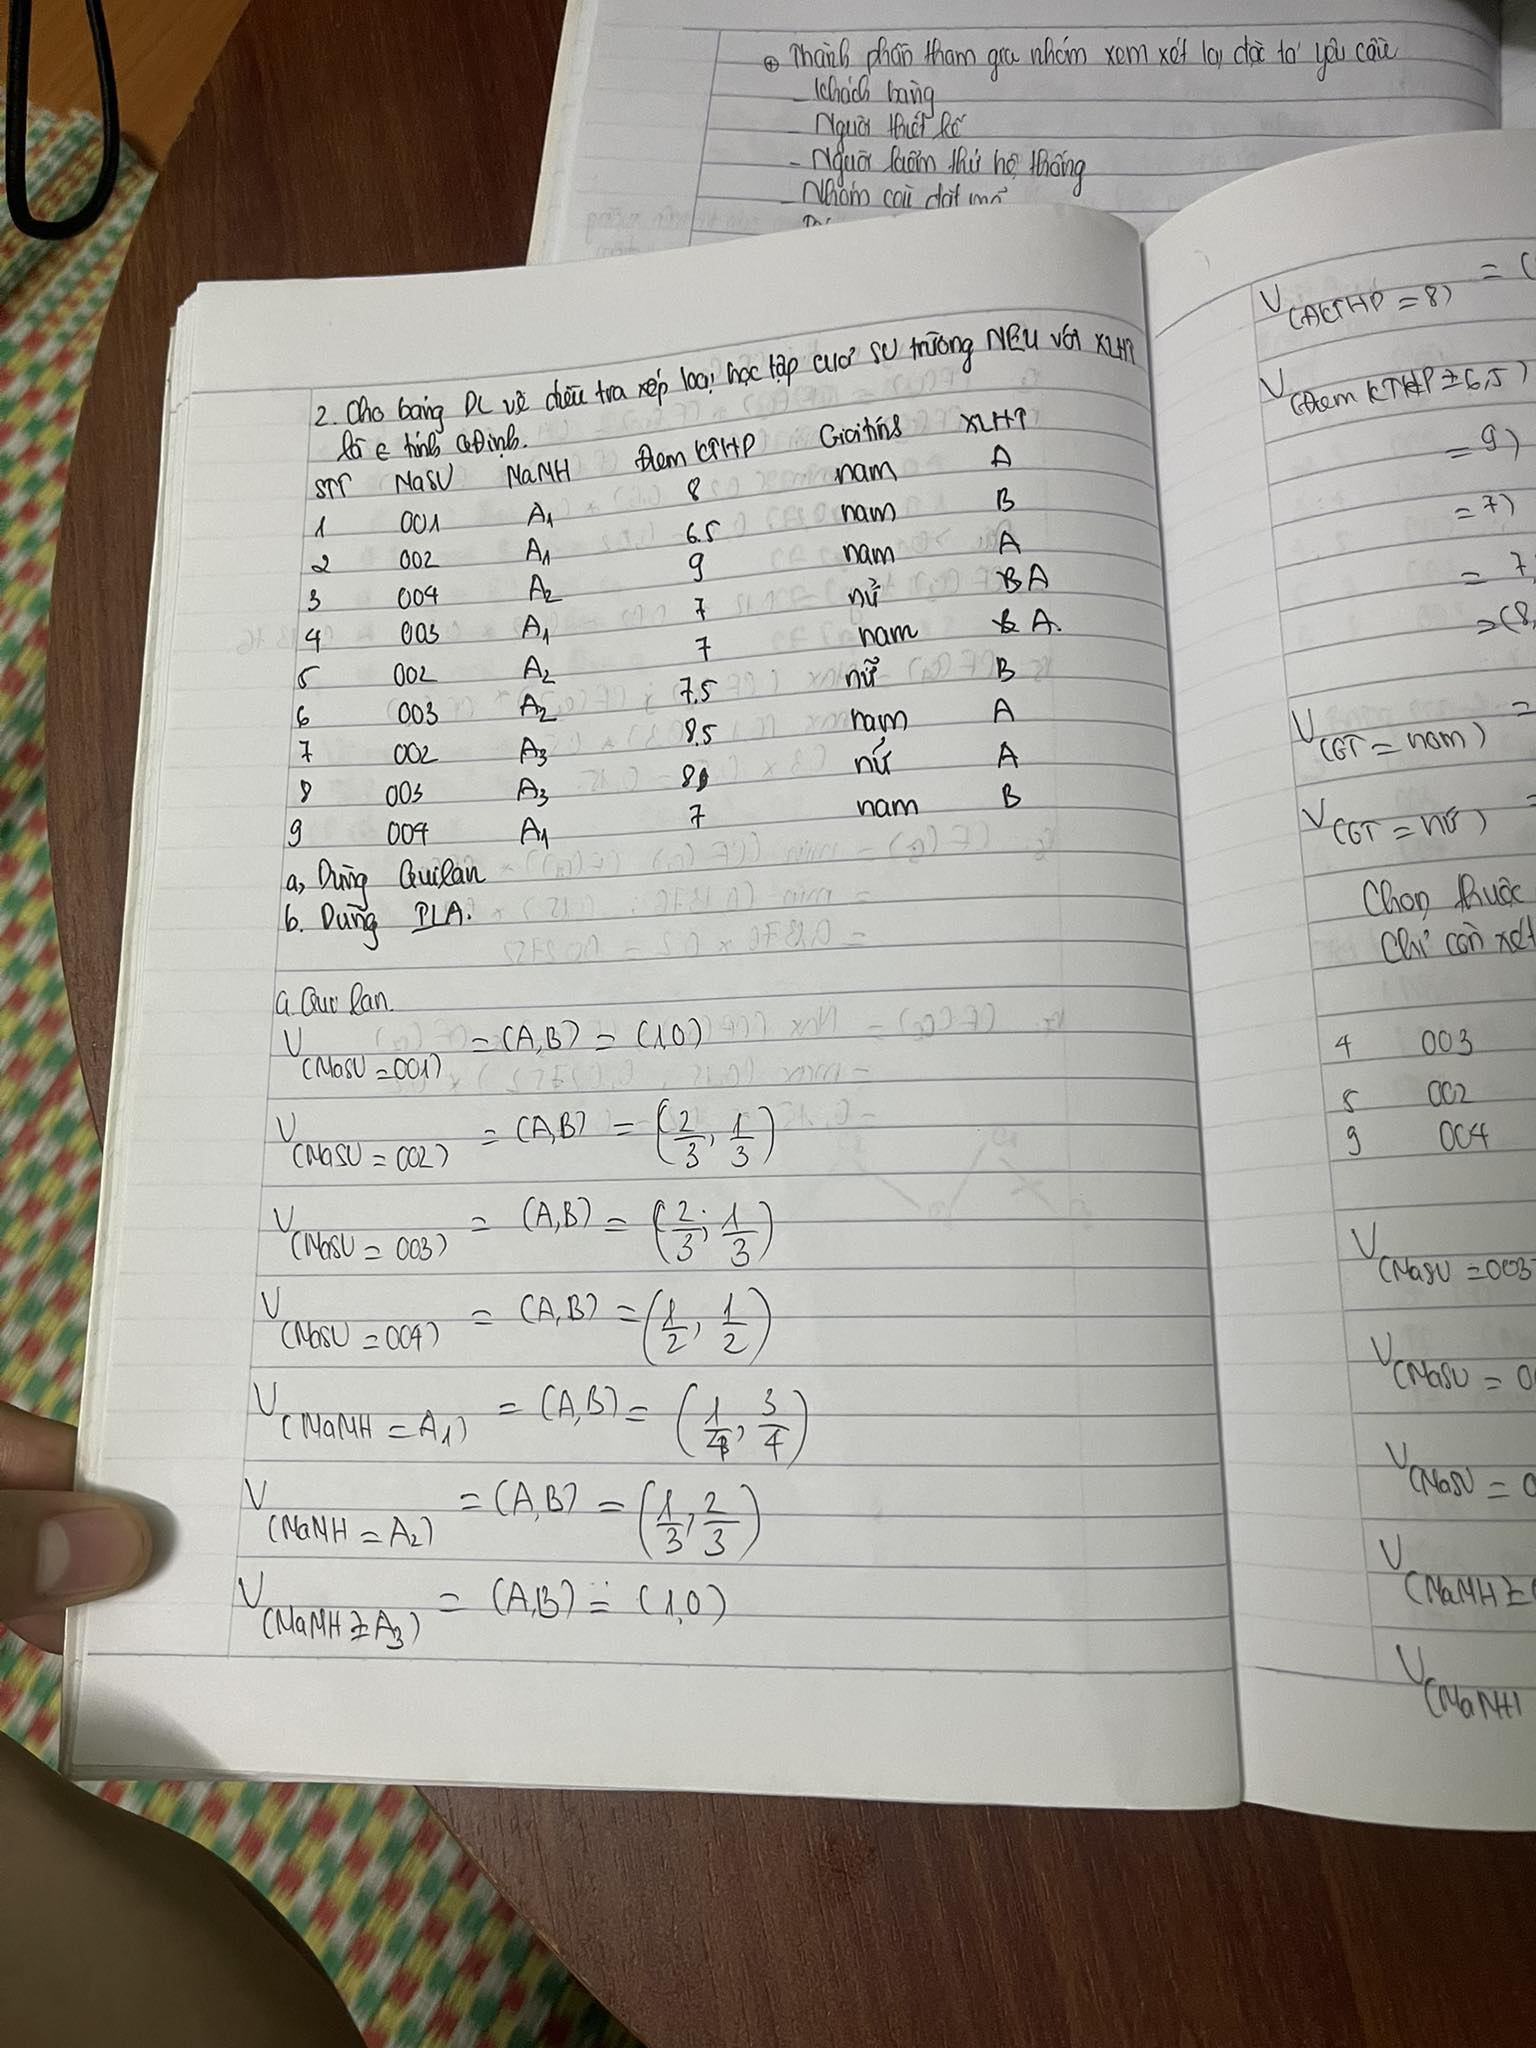 ⊕ Thành phần tham gia nhóm xem xét lại đặc tả yêu cầu
- Khách hàng
- Người thiết kế
- Người kiểm thử hệ thống
- Nhóm cài đặt mô
2. Cho bảng DL về điều tra xếp loại học tập của SV trường NEU với XLHT
là t tính qđịnh.
STT MaSV MaMH Điểm KTHP Giới tính XLHT
1 001 A1 8 nam A
2 002 A1 6.5 nam B
3 004 A2 9 nam A
4 003 A1 7 nữ B A
5 002 A2 7 nam A.
6 003 A2 7,5 nữ B
7 002 A3 8.5 nam A
8 003 A3 8 nữ A
9 004 A1 7 nam B
a, Dùng Quilan
b. Dùng ILA.
a. Qui lan.
V(MaSV = 001) = (A,B) = (1,0)
V(MaSV = 002) = (A,B) = (2/3, 1/3)
V(MaSV = 003) = (A,B) = (2/3; 1/3)
V(MaSV = 004) = (A,B) = (1/2, 1/2)
V(MaMH = A1) = (A,B) = (1/4, 3/4)
V(MaMH = A2) = (A,B) = (1/3, 2/3)
V(MaMH = A3) = (A,B) = (1,0)
V(ĐKTHP = 8) = (
V(Điểm KTHP = 6,5)
= 9)
= 7)
= 7,
= (8,
V(GT = nam) =
V(GT = nữ) =
Chọn thuộc
Chỉ còn xét
4 003
5 002
9 004
V(MaSV = 003
V(MaSV = 0
V(MaSV = 0
V(MaMH =
V(MaMH